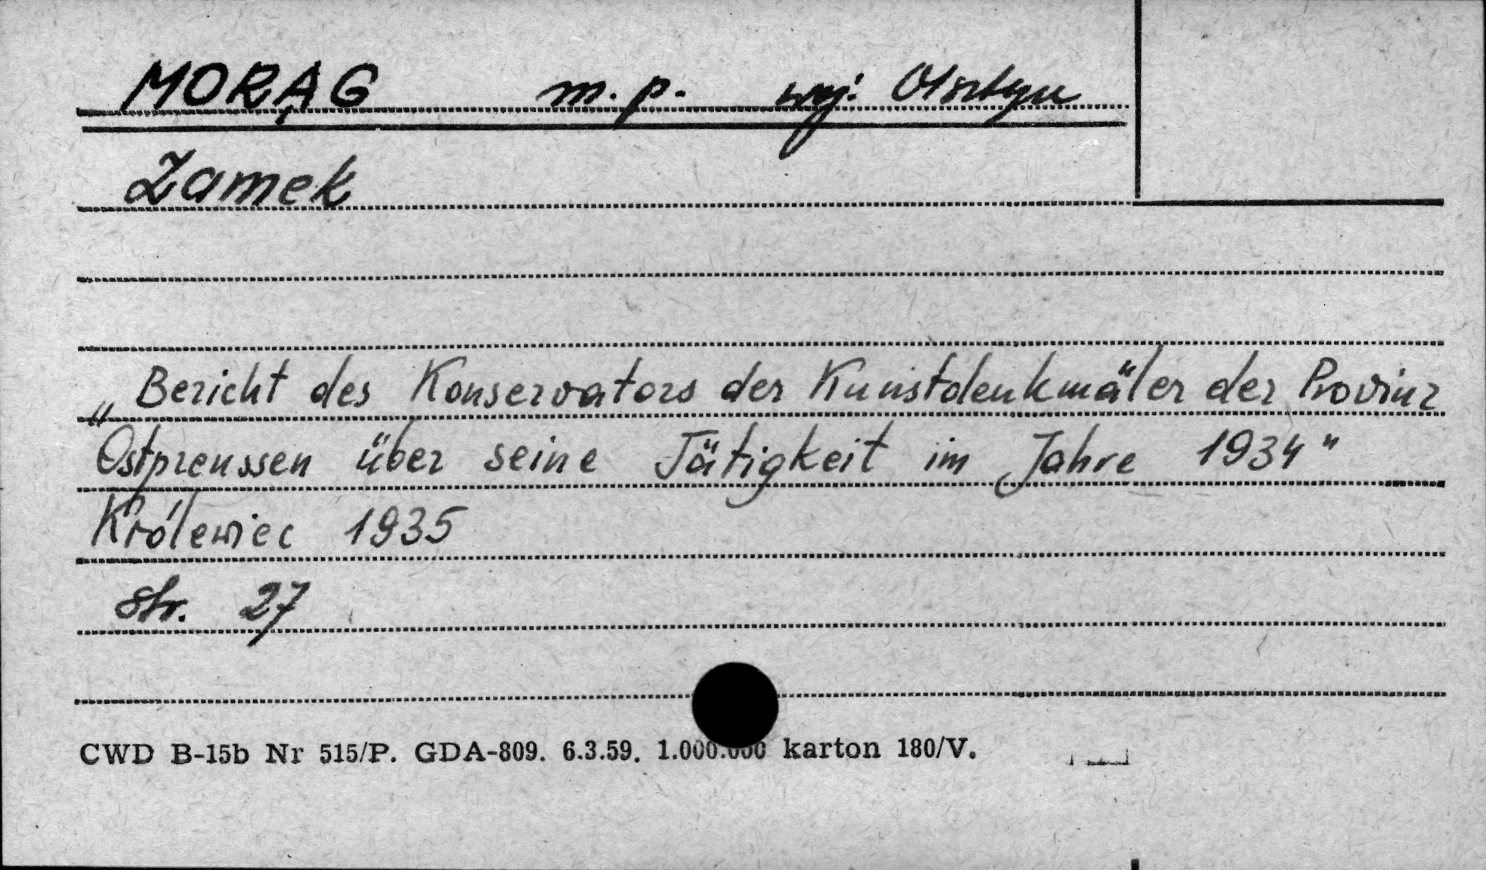 MORĄG m.p. woj. Olsztyn
Zamek
„Bericht des Konservators der Kunstdenkmäler der Provinz
Ostpreussen über seine Tätigkeit im Jahre 1934"
Królewiec 1935
str. 27
CWD B-15b Nr 515/P. GDA-809. 6.3.59. 1.000.000 karton 180/V.